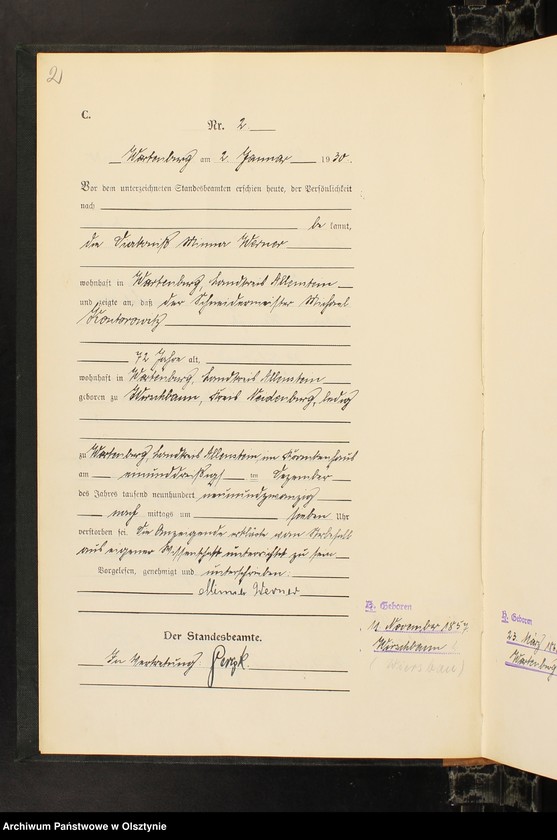 2
C.
Nr. 2
Wartenberg am 2. Januar 1930.
Vor dem unterzeichneten Standesbeamten erschien heute, der Persönlichkeit
nach
be kannt,
die Diakoniß Minna Werner
wohnhaft in Wartenberg, Landkreis Allenstein
und zeigte an, daß der Schneidermeister Michael
Kontorowitz
72 Jahre alt,
wohnhaft in Wartenberg, Landkreis Allenstein
geboren zu Kreis Neidenburg, ledig
zu Wartenberg, Landkreis Allenstein im Krankenhaus
am einunddreißigst en Dezember
des Jahres tausend neunhundert neunundzwanzig
nach mittags um sieben Uhr
verstorben sei. Die Anzeigende erklärte vom Sterbefall
aus eigener Wissenschaft unterrichtet zu sein
Vorgelesen, genehmigt und unterschrieben:
Minna Werner
Der Standesbeamte.
In Vertretung:
Geboren
11. November 1857
Geboren
23. März
Wartenberg
Archiwum Państwowe w Olsztynie